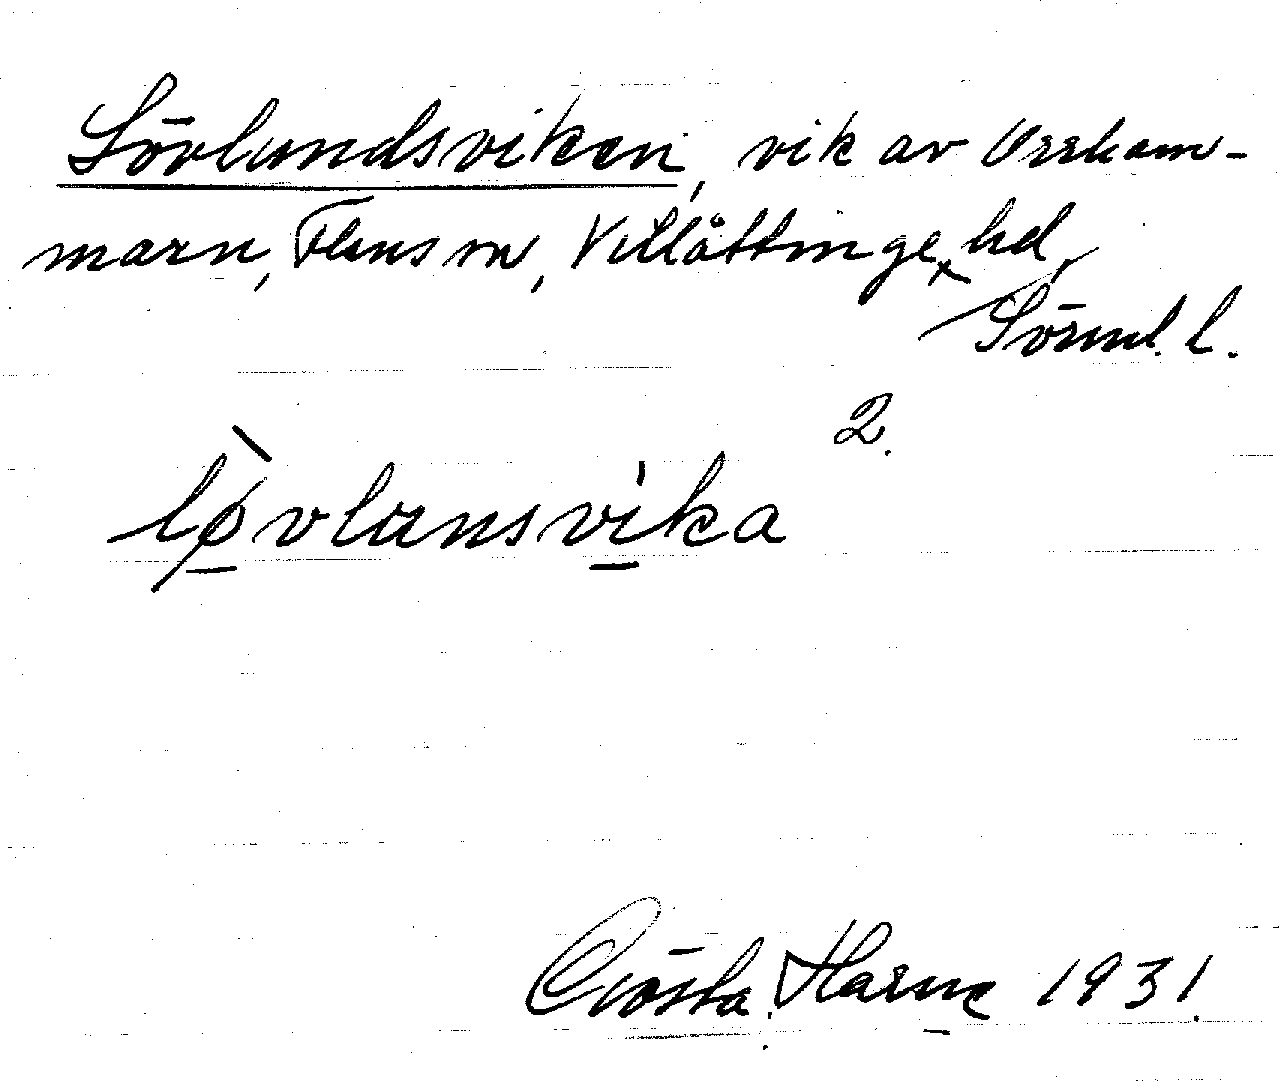 Lövlundsviken, vik av Orrkam-
marn, Flens sn, Villåttinge hd,
Sörml. l.
2.
lø̀vlunsvika
Gösta Harne 1931.